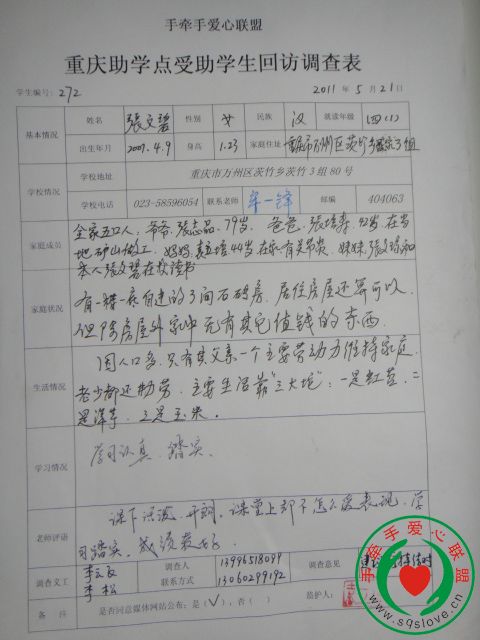 手牵手爱心联盟
重庆助学点受助学生回访调查表
学生编号: 272 2011 年 5 月 21 日
基本情况 姓名 张文碧 性别 女 民族 汉 就读年级 四(1)
出生年月 2001.4.9 身高 1.23 家庭住址 重庆市万州区茨竹乡 3组
学校情况 学校地址 重庆市万州区茨竹乡茨竹 3 组 80 号
学校电话 023-58596054 联系老师 牟一锋 邮编 404063
家庭成员 全家五口人,爷爷,张志品,79岁,爸爸,张培寿,42岁在当
地矿山做工,妈妈 44岁在家有关节炎,妹妹,张文 和
本人张文碧在校读书
家庭状况 有一楼一底自建的3间石砖房,居住房屋还算可以,
但除房屋外家中无有其它值钱的东西.
生活情况 因人口多,只有其父亲一个主要劳动力维持家庭,
老少都还勤劳,主要生活靠"三大坨":一是红苕,二
是洋芋,三是玉米。
学习情况 学习认真、踏实、
老师评语 课下活泼、开朗,课堂上却不怎么爱表现,学
习踏实,成绩较好.
调查义工 李 李松 调查人联系方式 13996518099 13060299192 调查意见
备注 是否同意媒体网站公布:是(√),否( ) 监护人:
手牵手爱心联盟
www.sqslove.cn